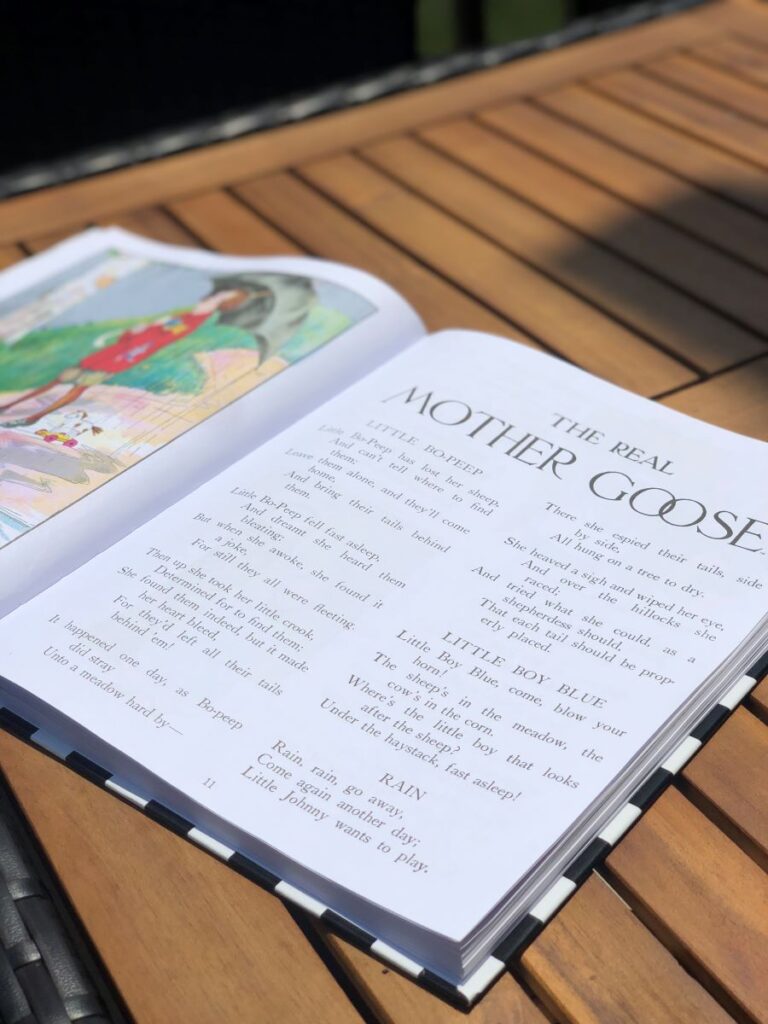 THE REAL
MOTHER GOOSE
LITTLE BO-PEEP
Little Bo-Peep has lost her sheep,
And can't tell where to find
them;
Leave them alone, and they'll come
home,
And bring their tails behind
them.
Little Bo-Peep fell fast asleep,
And dreamt she heard them
bleating;
But when she awoke, she found it
a joke,
For still they all were fleeting.
Then up she took her little crook,
Determined for to find them;
She found them indeed, but it made
her heart bleed,
For they'd left all their tails
behind 'em!
It happened one day, as Bo-peep
did stray
Unto a meadow hard by—
There she espied their tails, side
by side,
All hung on a tree to dry.
She heaved a sigh and wiped her eye,
And over the hillocks she
raced;
And tried what she could, as a
shepherdess should,
That each tail should be prop-
erly placed.
LITTLE BOY BLUE
Little Boy Blue, come, blow your
horn!
The sheep's in the meadow, the
cow's in the corn.
Where's the little boy that looks
after the sheep?
Under the haystack, fast asleep!
RAIN
Rain, rain, go away,
Come again another day;
Little Johnny wants to play.
11